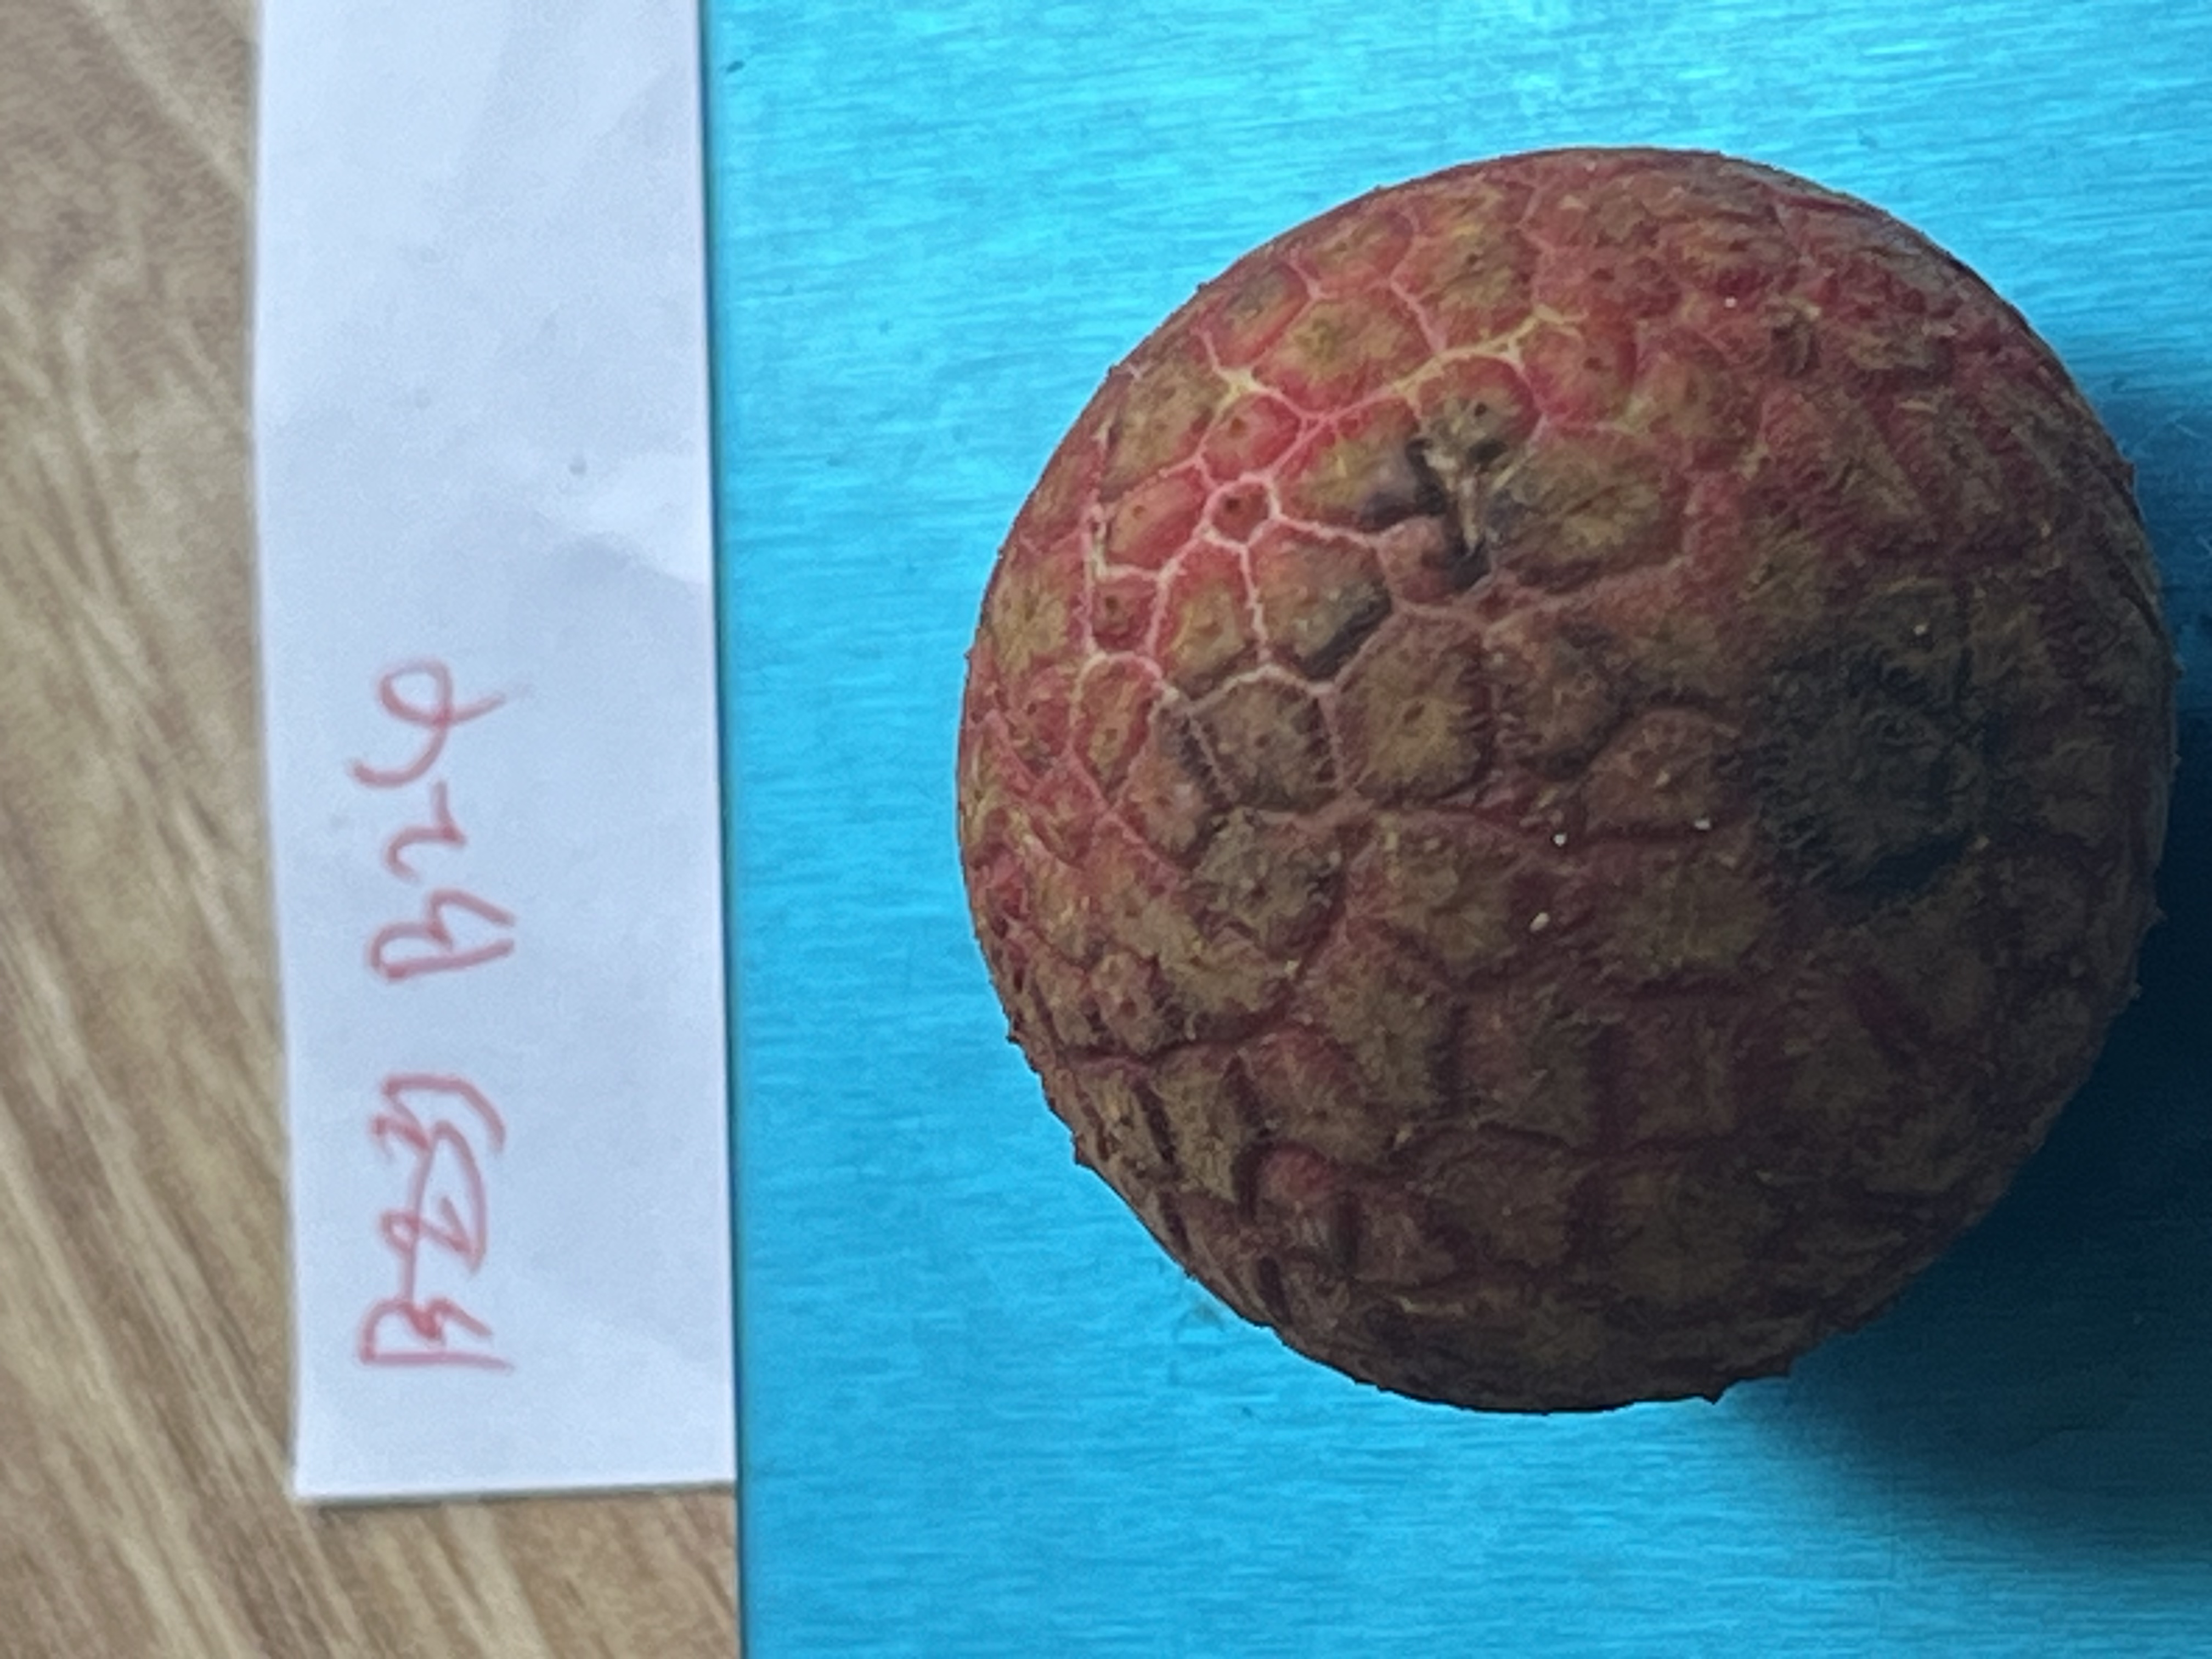 B23 B24